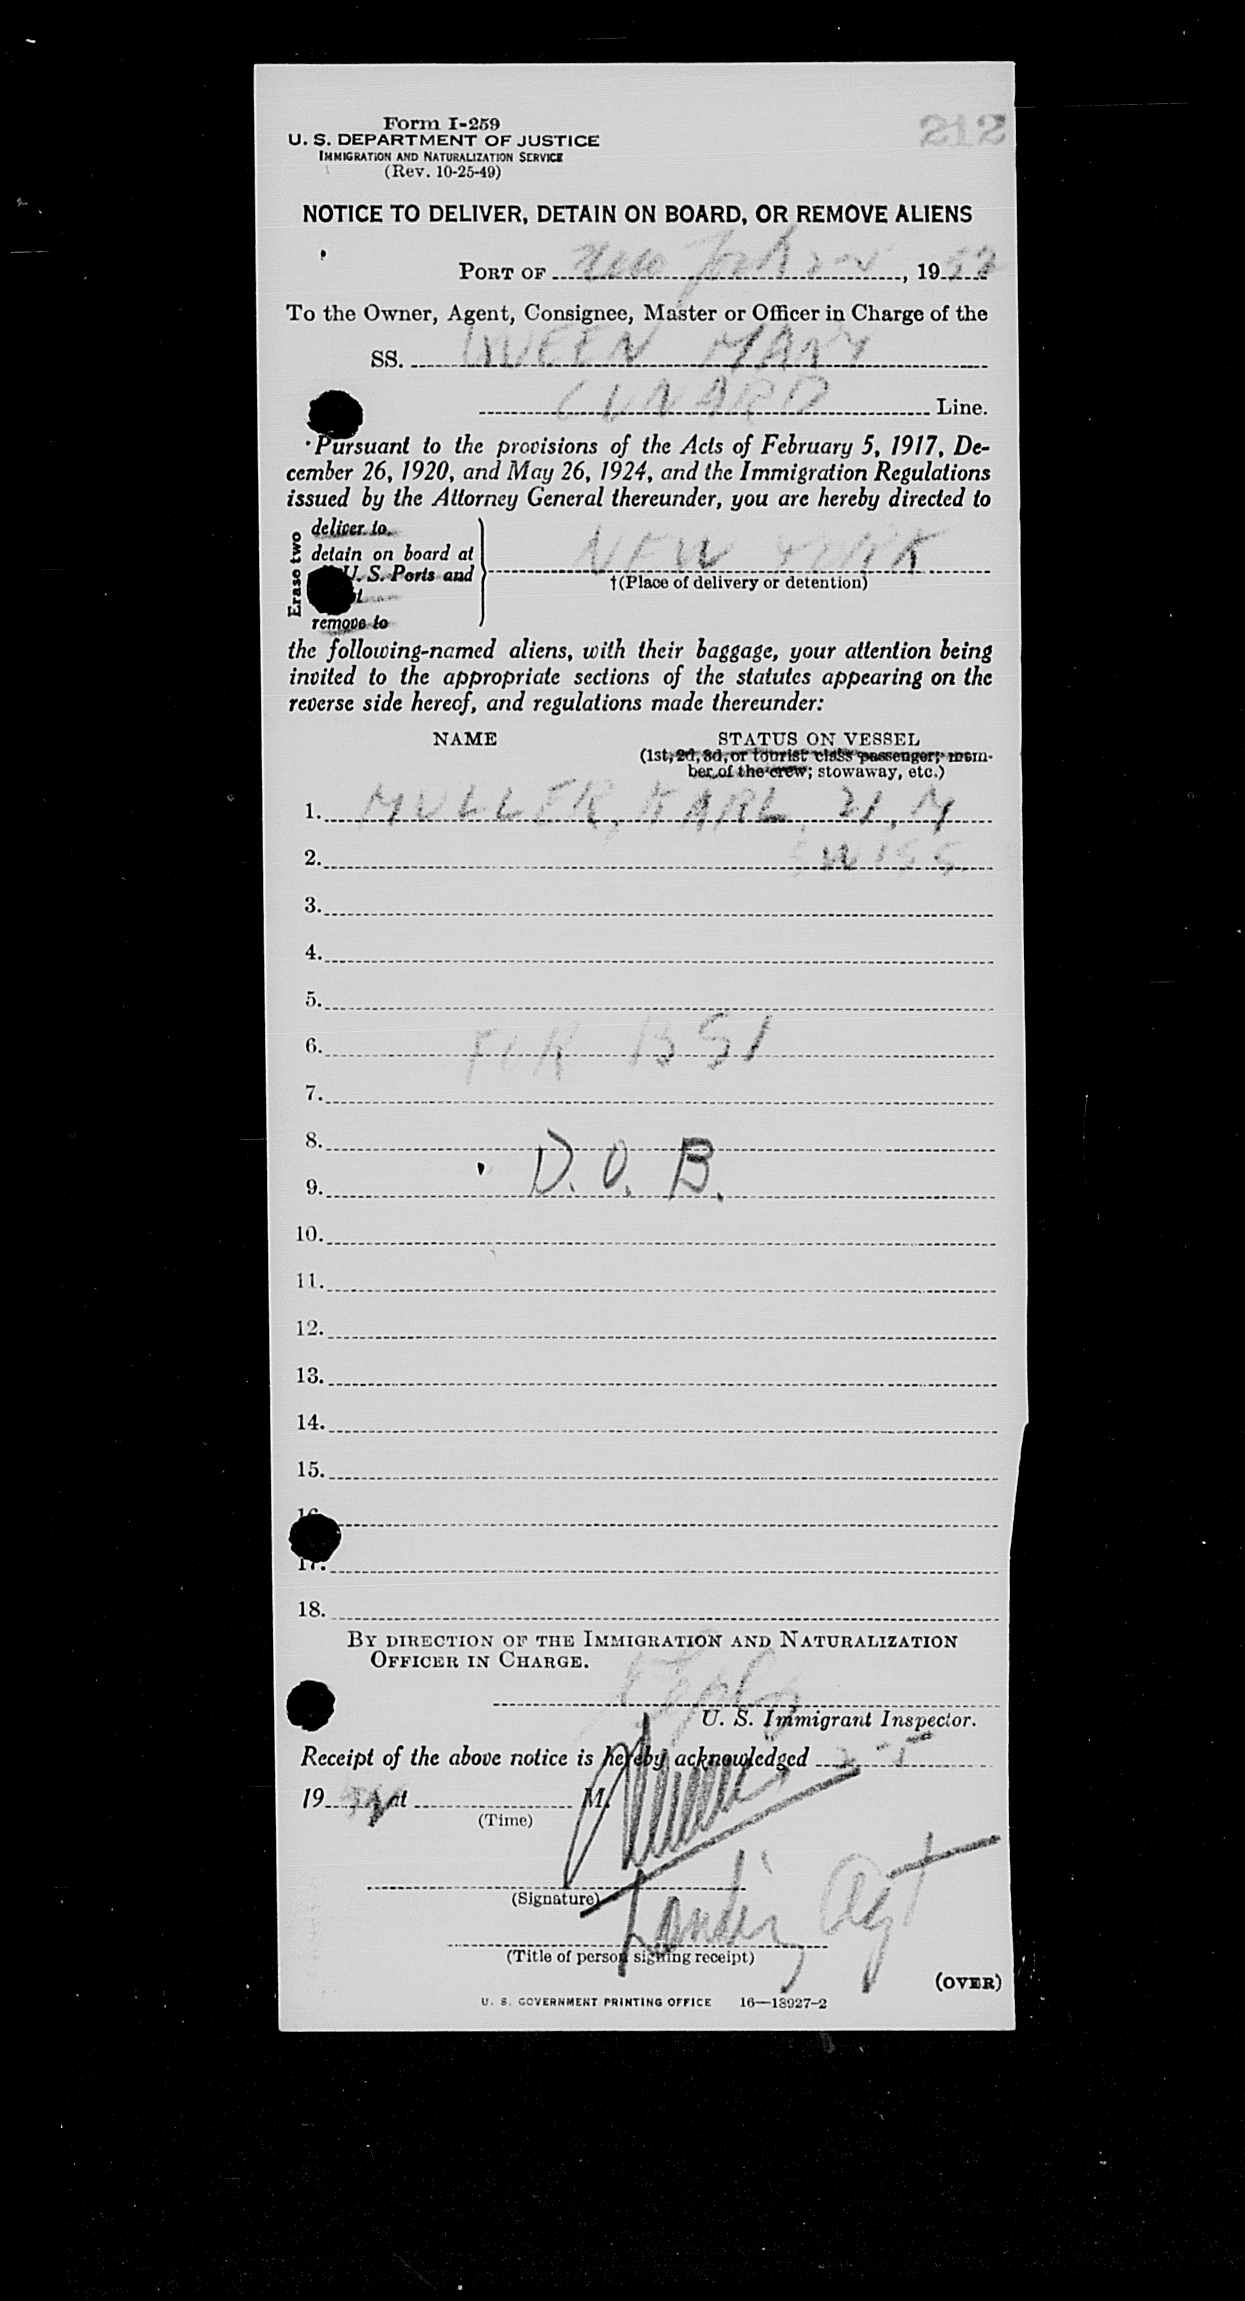 212
Form I-259
U. S. DEPARTMENT OF JUSTICE
IMMIGRATION AND NATURALIZATION SERVICE
(Rev. 10-25-49)
NOTICE TO DELIVER, DETAIN ON BOARD, OR REMOVE ALIENS
PORT OF New York, 19 52
To the Owner, Agent, Consignee, Master or Officer in Charge of the
SS. QUEEN MARY
CUNARD Line.
Pursuant to the provisions of the Acts of February 5, 1917, De-
cember 26, 1920, and May 26, 1924, and the Immigration Regulations
issued by the Attorney General thereunder, you are hereby directed to
Erase two
deliver to
detain on board at
U. S. Ports and
remove to
NEW YORK
†(Place of delivery or detention)
the following-named aliens, with their baggage, your attention being
invited to the appropriate sections of the statutes appearing on the
reverse side hereof, and regulations made thereunder:
NAME STATUS ON VESSEL
(1st, 2d, 3d, or tourist class passenger; mem-
ber of the crew; stowaway, etc.)
1. MULLER, KARL, 21, M
2. SWISS
3.
4.
5.
6. FOR BSI
7.
8.
D. O. B.
9.
10.
11.
12.
13.
14.
15.
16.
17.
18.
BY DIRECTION OF THE IMMIGRATION AND NATURALIZATION
OFFICER IN CHARGE.
U. S. Immigrant Inspector.
Receipt of the above notice is hereby acknowledged
19 at M.
(Time)
(Signature)
Landing Agt
(Title of person signing receipt)
(OVER)
U. S. GOVERNMENT PRINTING OFFICE 16—18927-2